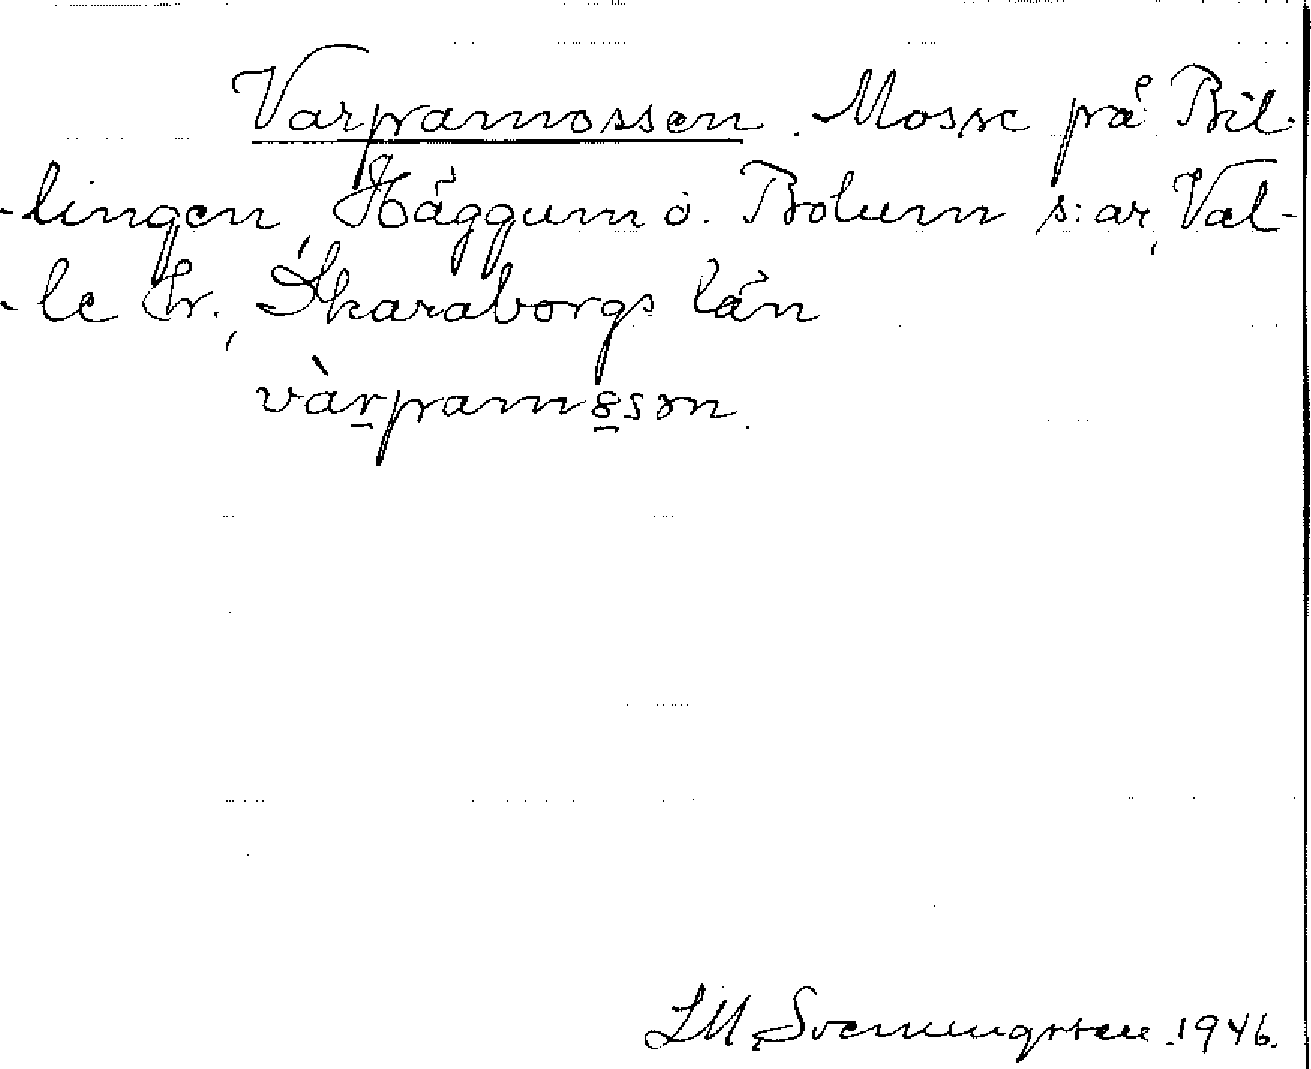 Varpamossen. Mosse på Bil-
-lingen, Häggum o. Bolum s:ar, Val-
-le hr., Skaraborgs län
vàrpamosən.
LM Svenungsson 1946.